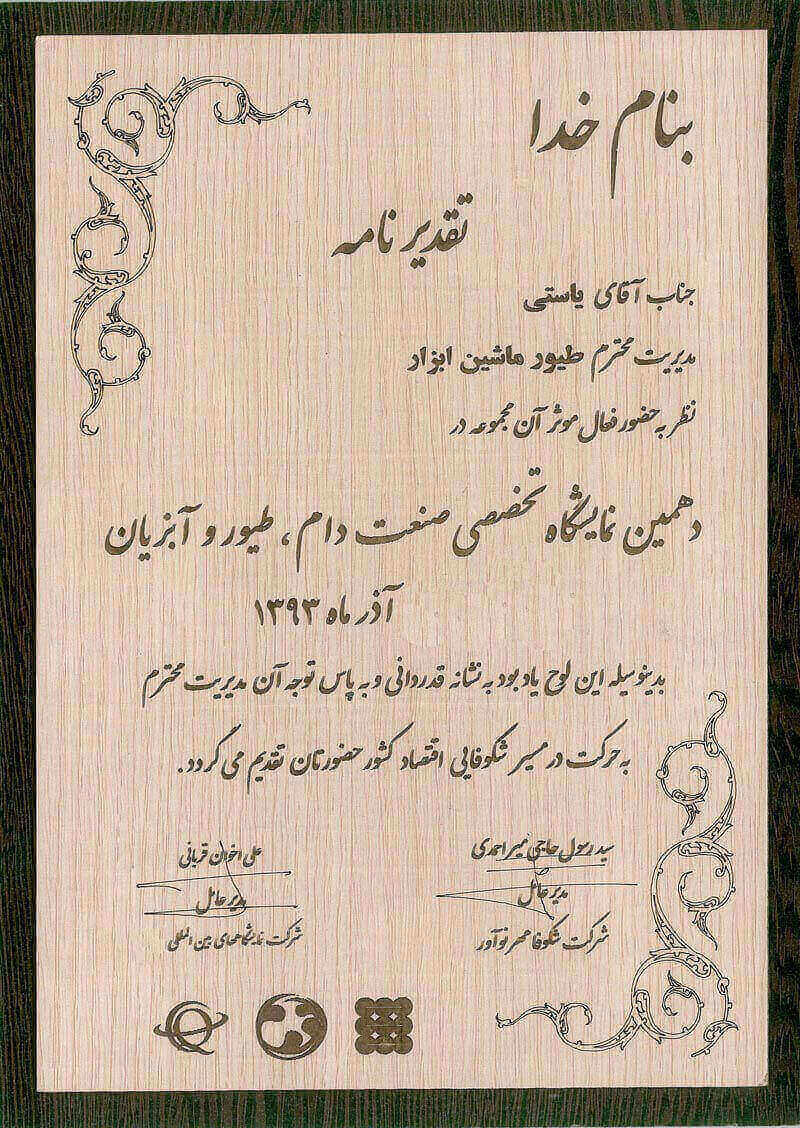 بنام خدا
تقدیر نامه
جناب آقای یاستی
مدیریت محترم طیور ماشین ابزار
نظر به حضور فعال موثر آن مجموعه در
دهمین نمایشگاه تخصصی صنعت دام، طیور و آبزیان
آذر ماه ۱۳۹۳
بدینوسیله این لوح یادبود به نشانه قدردانی و به پاس توجه آن مدیریت محترم
به حرکت در مسیر شکوفایی اقتصاد کشور حضورتان تقدیم می گردد.
سید رسول حاجی میراحمدی
مدیر عامل
شرکت شکوفا مهر نوآور
علی اخوان قربانی
مدیر عامل
شرکت نمایشگاههای بین المللی